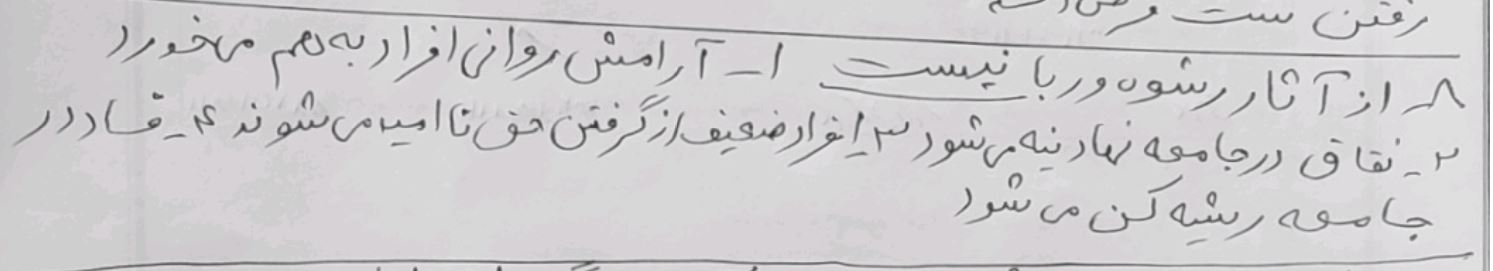 رفتن ست
۸- از آثار رشوه و ربا نیست ۱- آرامش روانی افراد به هم می‌خورد
۲- نفاق در جامعه نهادینه می‌شود ۳- افراد ضعیف از گرفتن حق ناامید می‌شوند ۴- فساد در
جامعه ریشه کن می‌شود